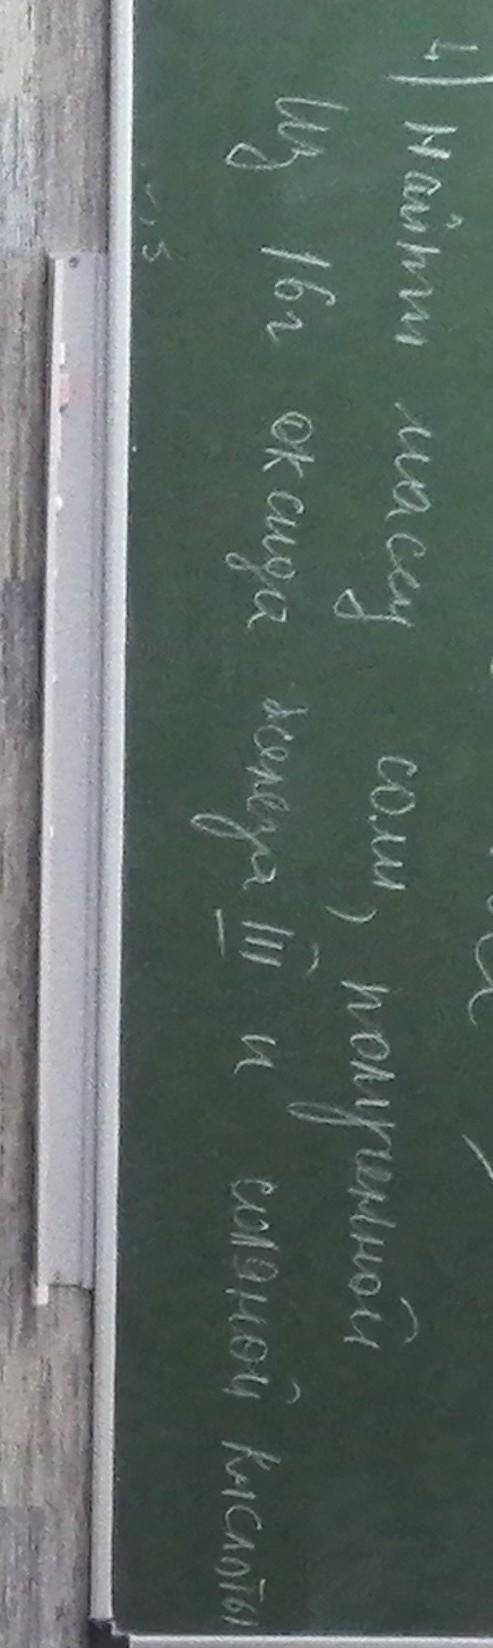 4) Найти массу соли, полученной
Из 16г оксида железа III и соляной кислоты